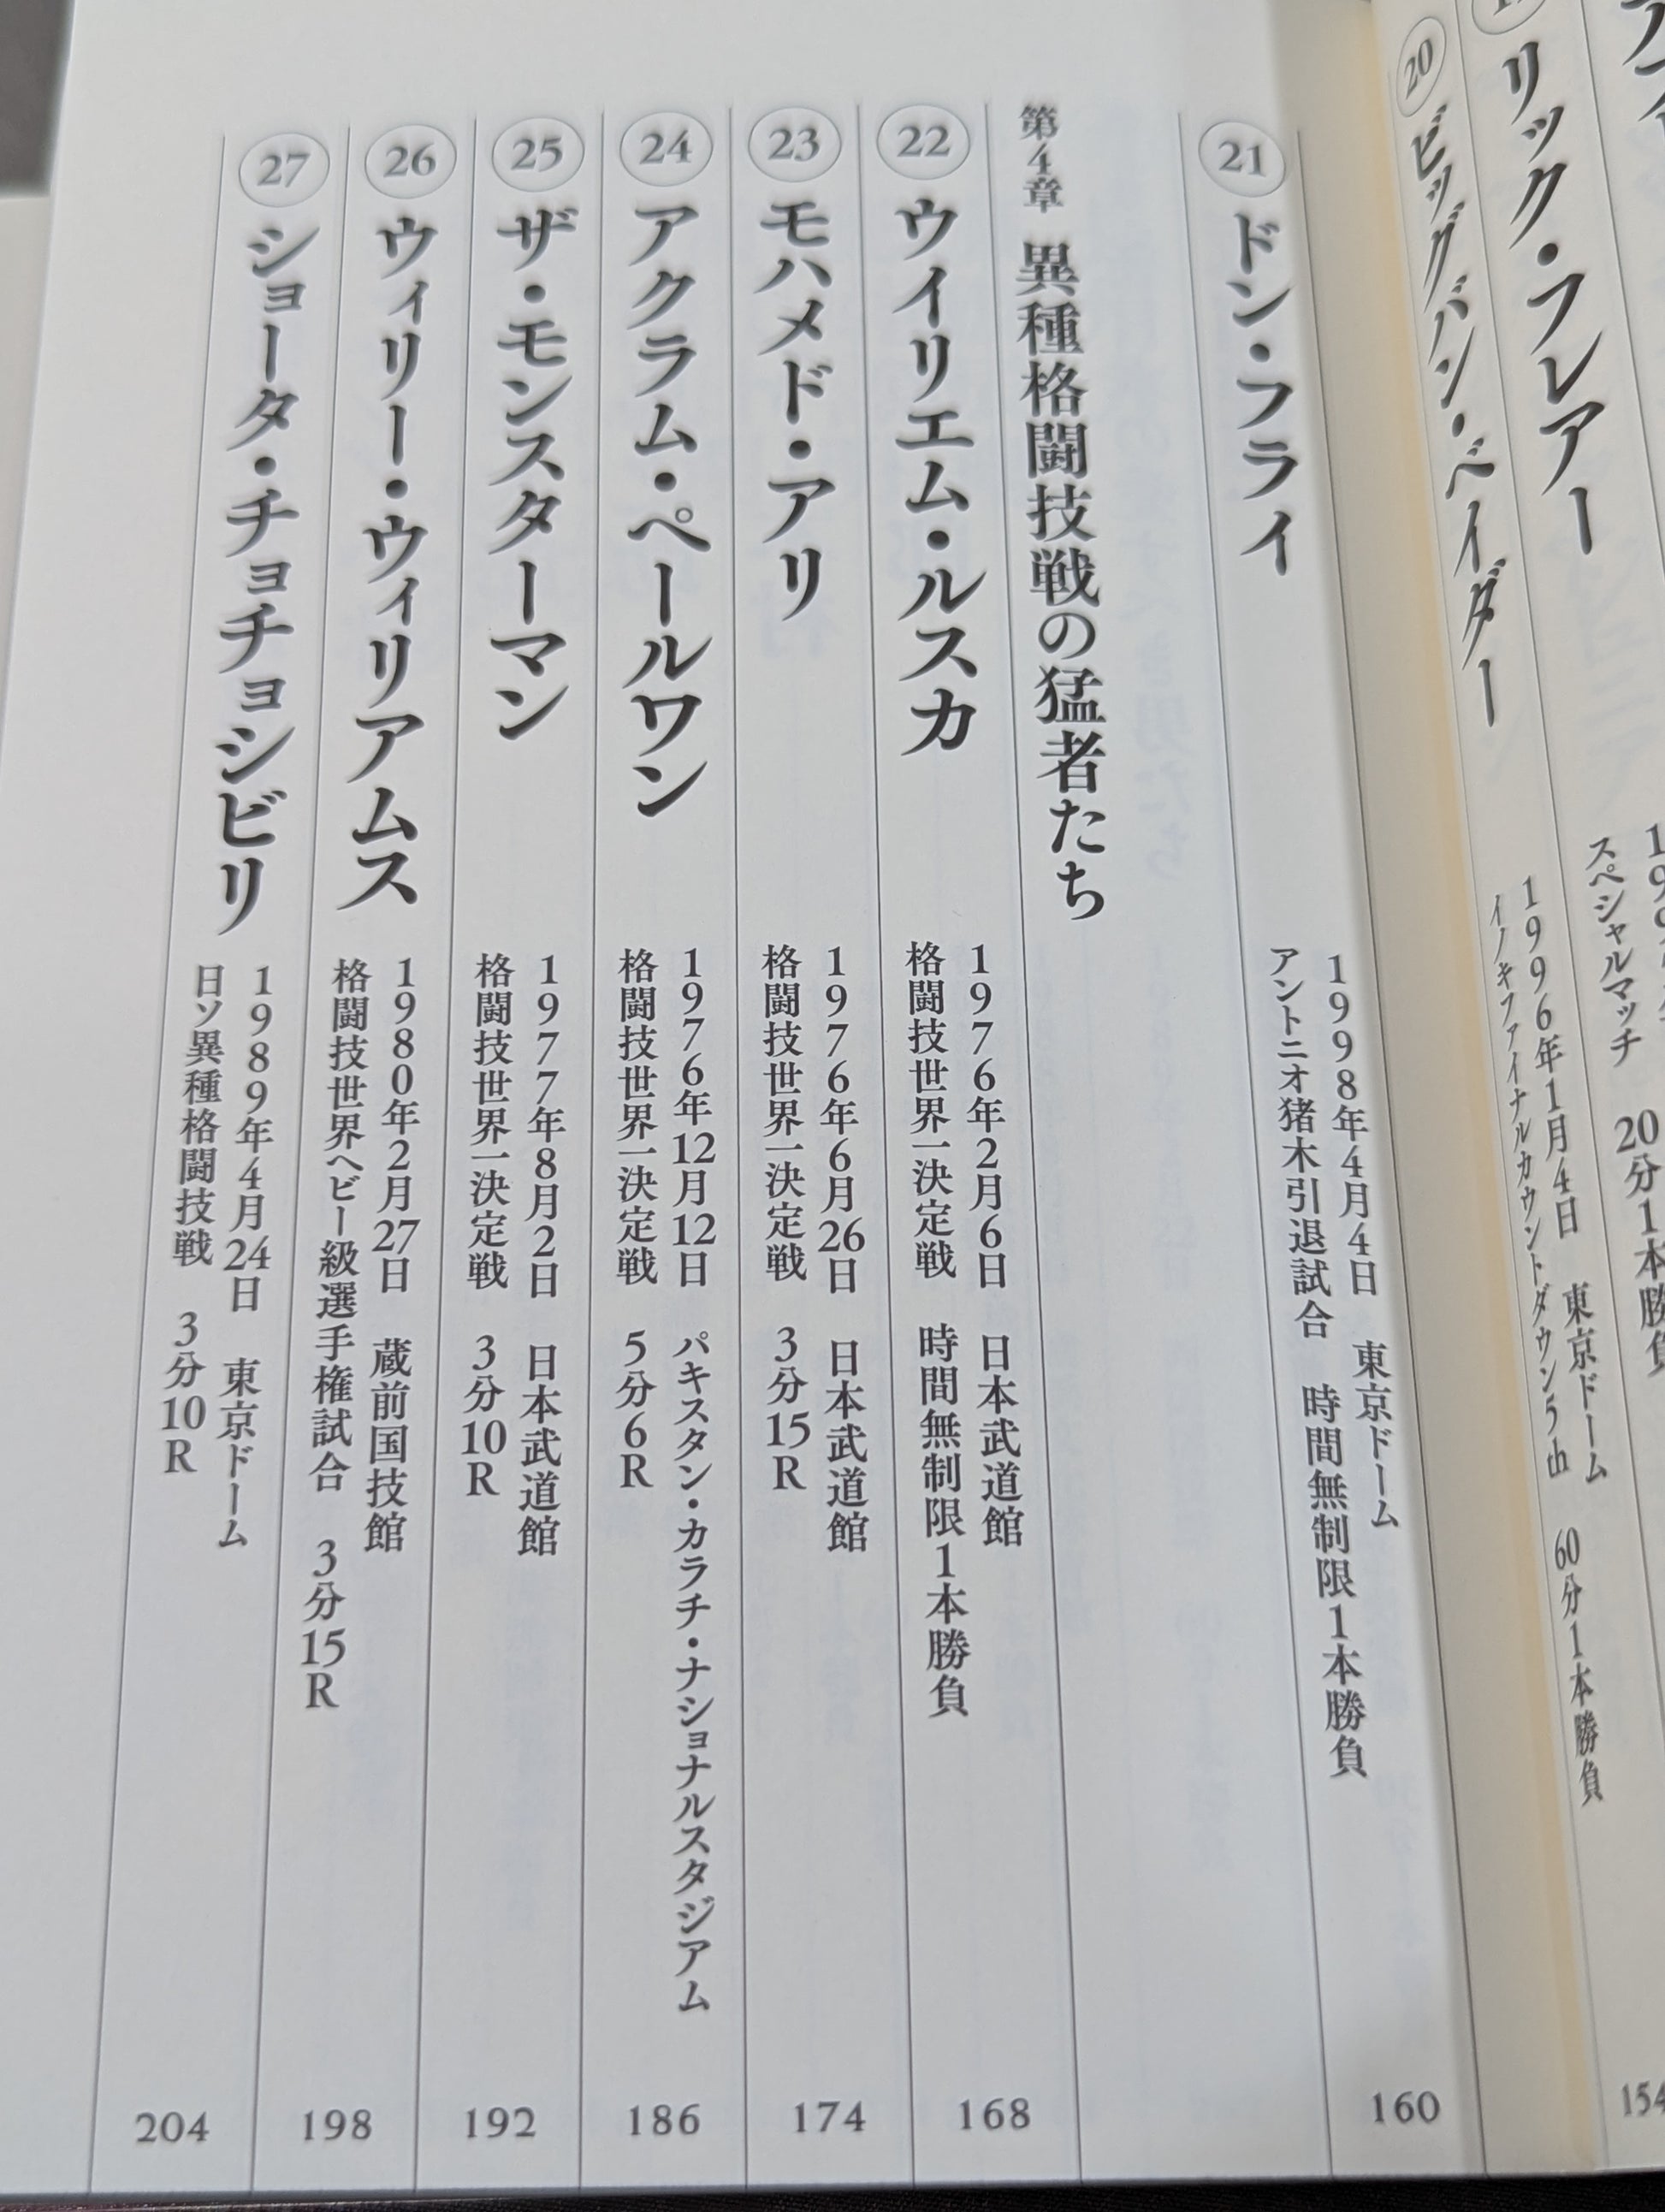 リック・フレアー
スペシャルマッチ 20分1本勝
⑳ ビッグバン・ベイダー
1996年1月4日 東京ドーム
イノキファイナルカウントダウン5th 60分1本勝負
154
㉑ ドン・フライ
1998年4月4日 東京ドーム
アントニオ猪木引退試合 時間無制限1本勝負
160
第4章 異種格闘技戦の猛者たち
㉒ ウイリエム・ルスカ
1976年2月6日 日本武道館
格闘技世界一決定戦 時間無制限1本勝負
168
㉓ モハメド・アリ
1976年6月26日 日本武道館
格闘技世界一決定戦 3分15R
174
㉔ アクラム・ペールワン
1976年12月12日 パキスタン・カラチ・ナショナルスタジアム
格闘技世界一決定戦 5分6R
186
㉕ ザ・モンスターマン
1977年8月2日 日本武道館
格闘技世界一決定戦 3分10R
192
㉖ ウィリー・ウィリアムス
1980年2月27日 蔵前国技館
格闘技世界ヘビー級選手権試合 3分15R
198
㉗ ショータ・チョチョシビリ
1989年4月24日 東京ドーム
日ソ異種格闘技戦 3分10R
204